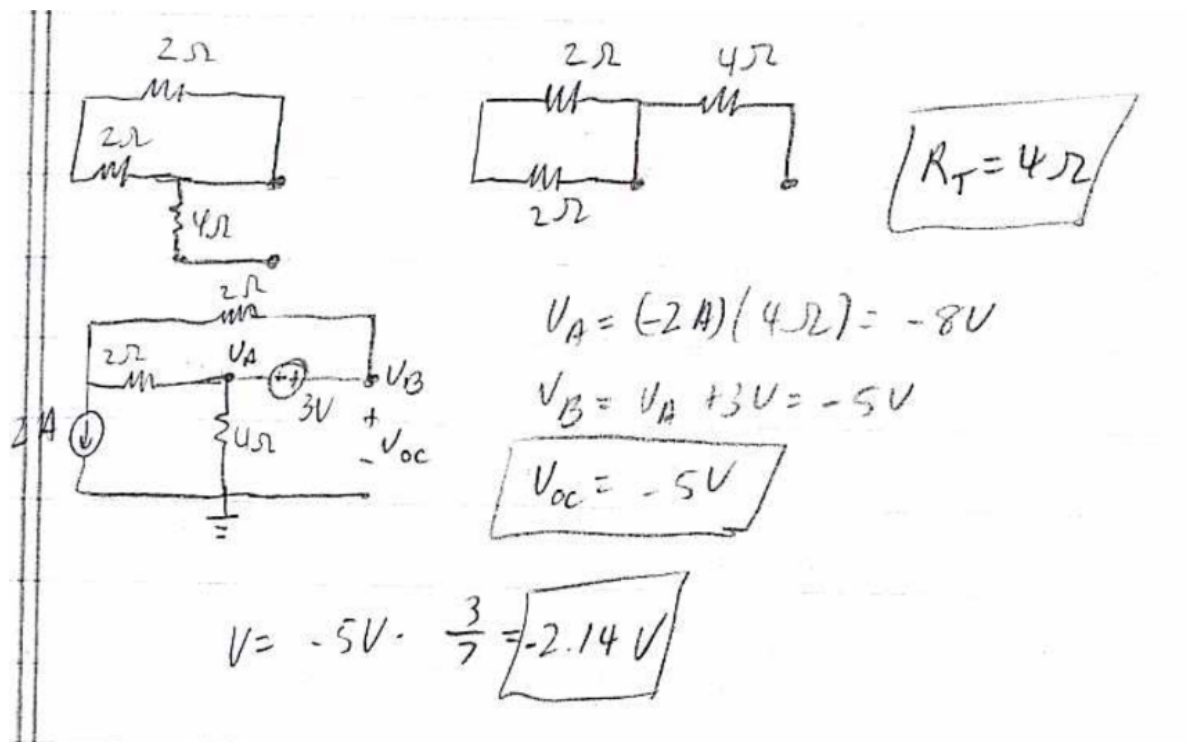 2Ω
2Ω
4Ω
2Ω 4Ω
2Ω
R_T = 4Ω
2Ω
2Ω V_A
3V
V_B
2A
4Ω
+
V_oc
-
V_A = (-2A)(4Ω) = -8V
V_B = V_A +3V = -5V
V_oc = -5V
V = -5V · 3/7 = -2.14 V